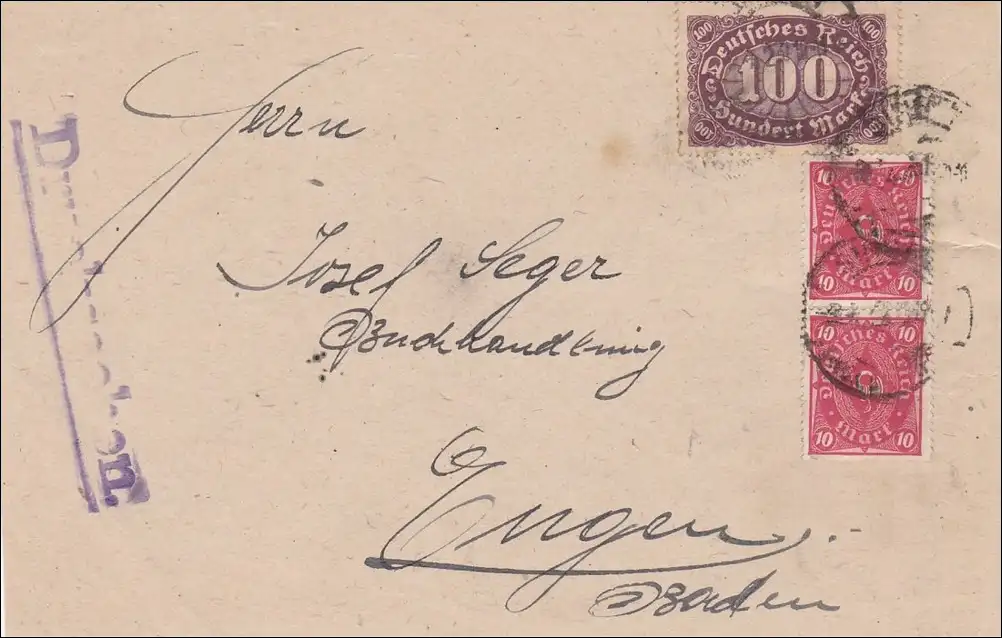 Herrn
Josef Seger
Buchhandlung
Engen
Baden
Drucksachen.
100 100
Deutsches Reich
100
Hundert Mark
100 100
10 10
Deutsches Reich
Mark
10 10
10 10
Deutsches Reich
Mark
10 10